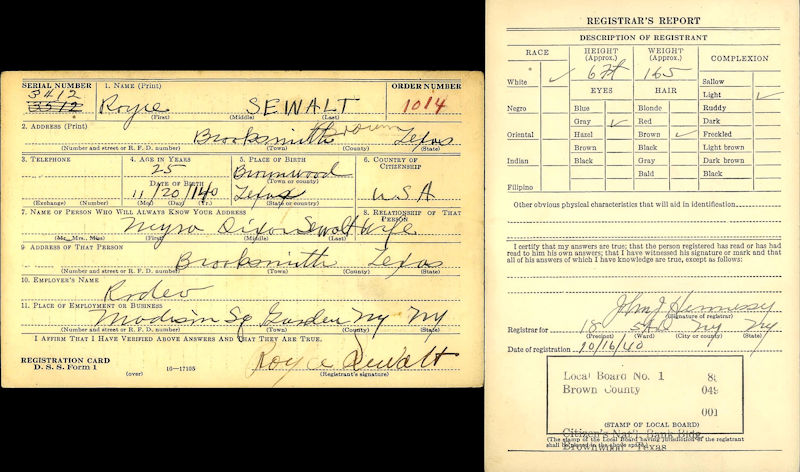 SERIAL NUMBER
1. NAME (Print)
ORDER NUMBER
3412
3512
Royce SEWALT
1014
(First) (Middle) (Last)
2. ADDRESS (Print)
Brooksmith Brown Texas
(Number and street or R. F. D. number) (Town) (County) (State)
3. TELEPHONE
4. AGE IN YEARS
25
DATE OF BIRTH
11/20/140
(Mo.) (Day) (Yr.)
5. PLACE OF BIRTH
Brownwood
(Town or county)
Texas
(State or country)
6. COUNTRY OF CITIZENSHIP
USA
(Exchange) (Number)
7. NAME OF PERSON WHO WILL ALWAYS KNOW YOUR ADDRESS
8. RELATIONSHIP OF THAT PERSON
Myra Dixon Sewalt Wife
(Mr., Mrs., Miss) (First) (Middle) (Last)
9. ADDRESS OF THAT PERSON
Brooksmith Texas
(Number and street or R. F. D. number) (Town) (County) (State)
10. EMPLOYER'S NAME
Rodeo
11. PLACE OF EMPLOYMENT OR BUSINESS
Madison Sq Garden Ny Ny
(Number and street or R. F. D. number) (Town) (County) (State)
I AFFIRM THAT I HAVE VERIFIED ABOVE ANSWERS AND THAT THEY ARE TRUE.
REGISTRATION CARD
D. S. S. Form 1
(over)
16—17105
Royce Sewalt
(Registrant's signature)
REGISTRAR'S REPORT
DESCRIPTION OF REGISTRANT
RACE
HEIGHT (Approx.)
WEIGHT (Approx.)
COMPLEXION
White ✓
6 ft
165
Sallow
EYES
HAIR
Light ✓
Negro
Blue
Blonde
Ruddy
Gray ✓
Red
Dark
Oriental
Hazel
Brown ✓
Freckled
Brown
Black
Light brown
Indian
Black
Gray
Dark brown
Bald
Black
Filipino
Other obvious physical characteristics that will aid in identification
I certify that my answers are true; that the person registered has read or has had
read to him his own answers; that I have witnessed his signature or mark and that
all of his answers of which I have knowledge are true, except as follows:
John J Hennessy
(Signature of registrar)
Registrar for 18 5 AD Ny Ny
(Precinct) (Ward) (City or county) (State)
Date of registration 10/16/40
Local Board No. 1
Brown County 049
001
(STAMP OF LOCAL BOARD)
Citizen's Nat'l. Bank Bldg.
(The stamp of the Local Board having jurisdiction of the registrant
shall be placed in the above space.)
Brownwood, Texas